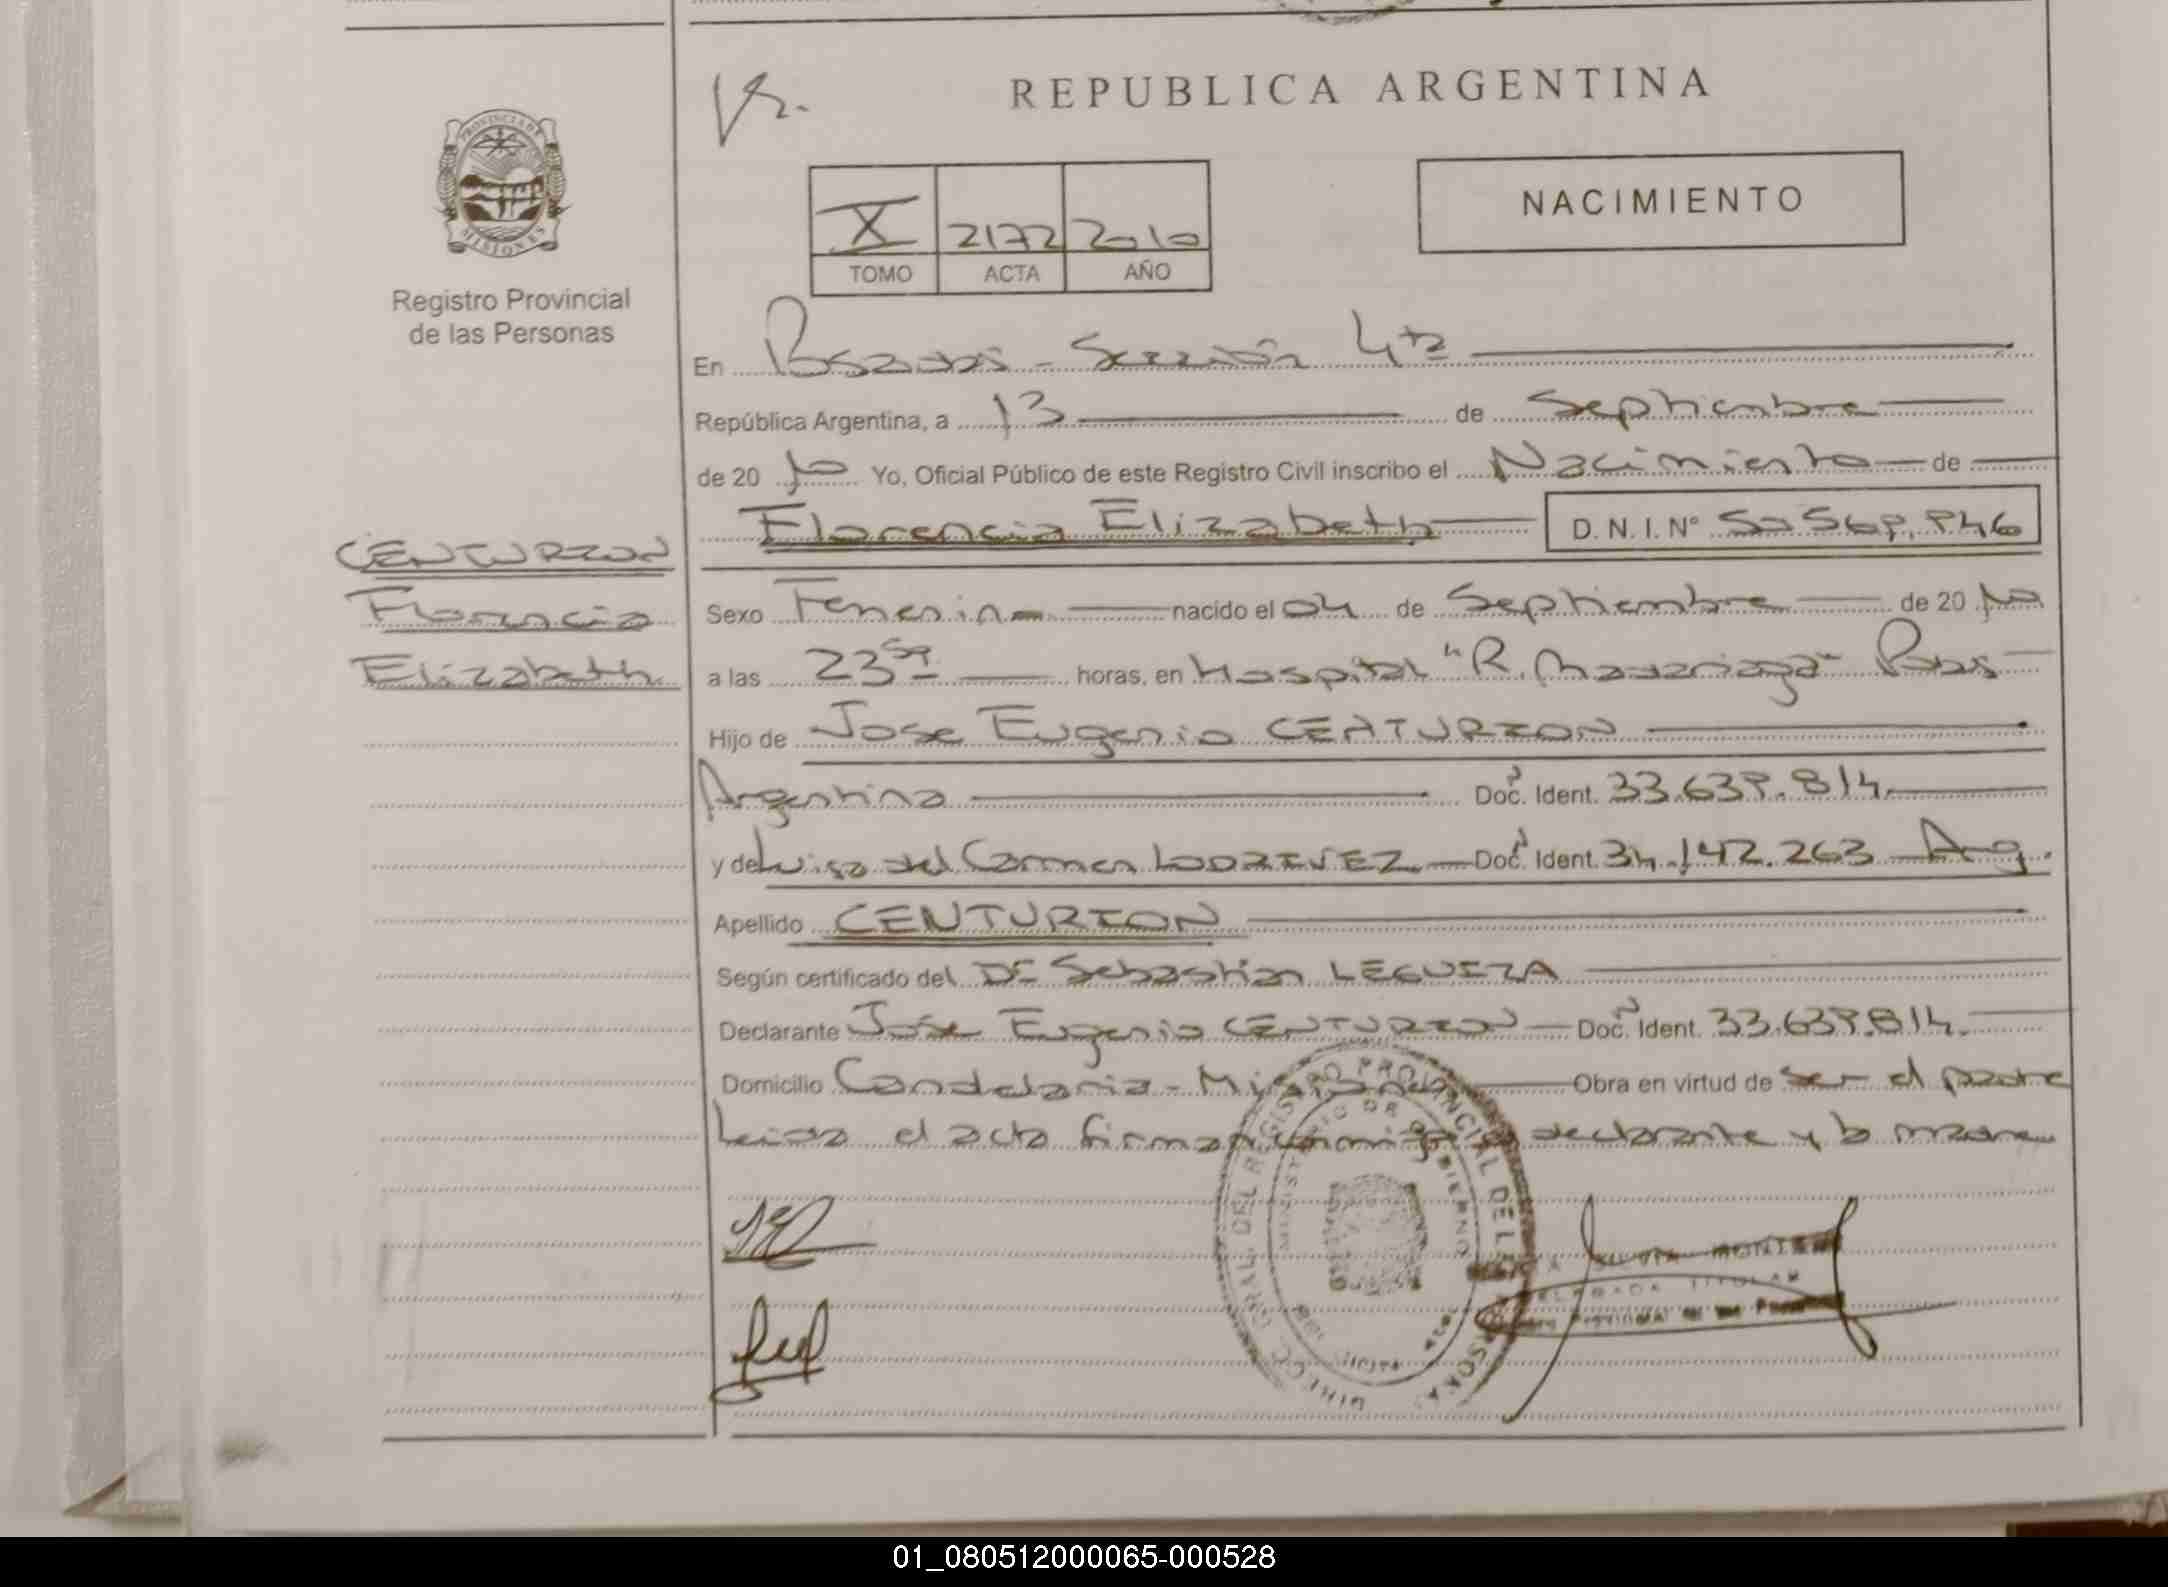 REPUBLICA ARGENTINA
PROVINCIA DE
MISIONES
Registro Provincial
de las Personas
X 2172 2010
TOMO ACTA AÑO
NACIMIENTO
En Posadas - Sección 4ta
República Argentina, a 13 de Septiembre
de 20 10 Yo, Oficial Público de este Registro Civil inscribo el Nacimiento de
Florencia Elizabeth D. N. I. Nº
CENTURION
Florencia
Elizabeth
Sexo Femenino nacido el 04 de Septiembre de 20 10
a las 23 horas, en Hospital "R. Madariaga" Pdas
Hijo de Jose Eugenio CENTURION
Argentino Doc. Ident. 33.639.814.
y de Luisa del Carmen Doc. Ident. 34.142.263 Arg.
Apellido CENTURION
Según certificado del Sebastian LEGUIZA
Declarante Jose Eugenio CENTURION Doc. Ident. 33.639.814.
Domicilio Candelaria - Misiones Obra en virtud de ser el padre
Leida el acta firman conmigo el declarante y la madre
DEL REGISTRO PROVINCIAL DE LAS PERSONAS
MINISTERIO DE GOBIERNO
SILVIA
TITULAR
01_080512000065-000528